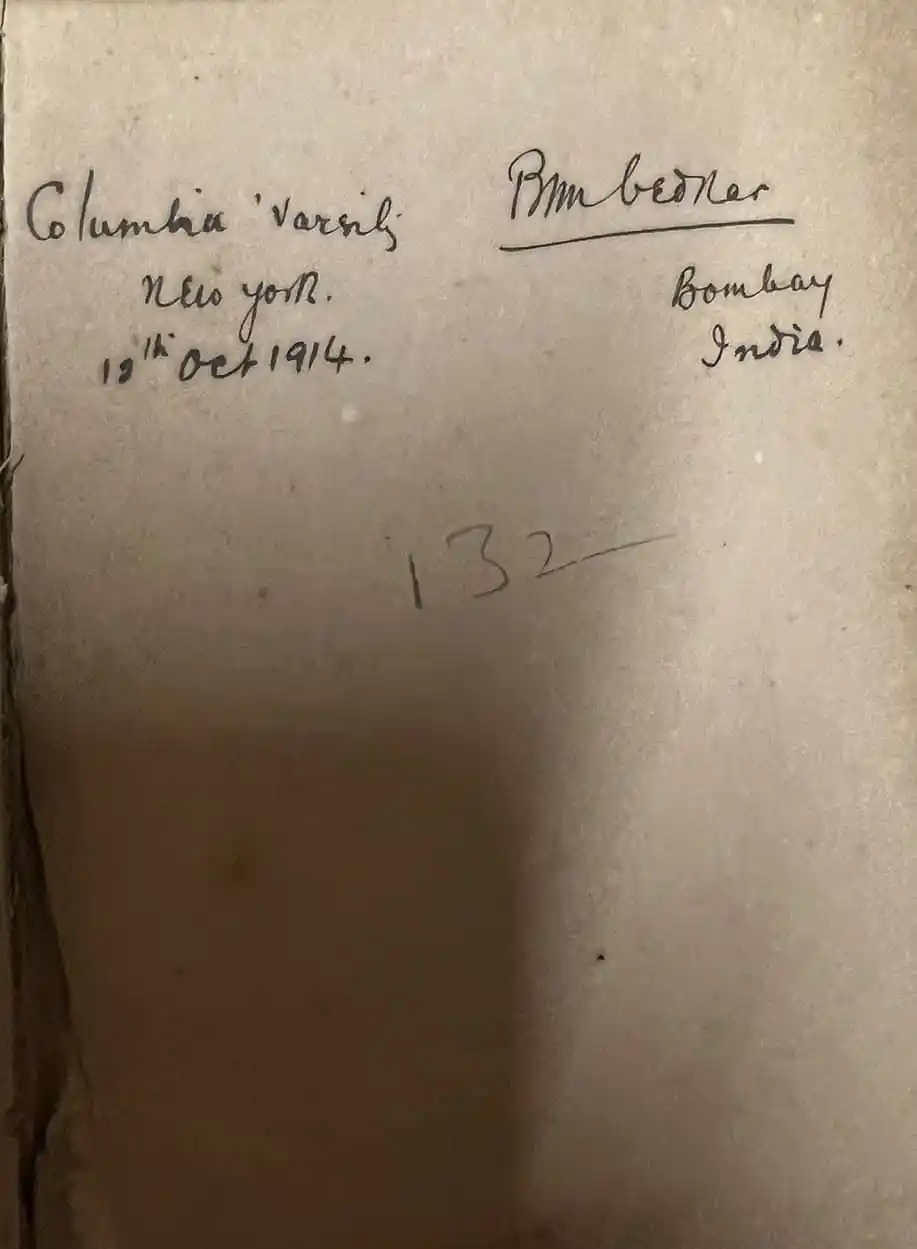 Columbia 'Varsity
New York.
Oct 1914.
BRAmbedkar
Bombay
India.
132